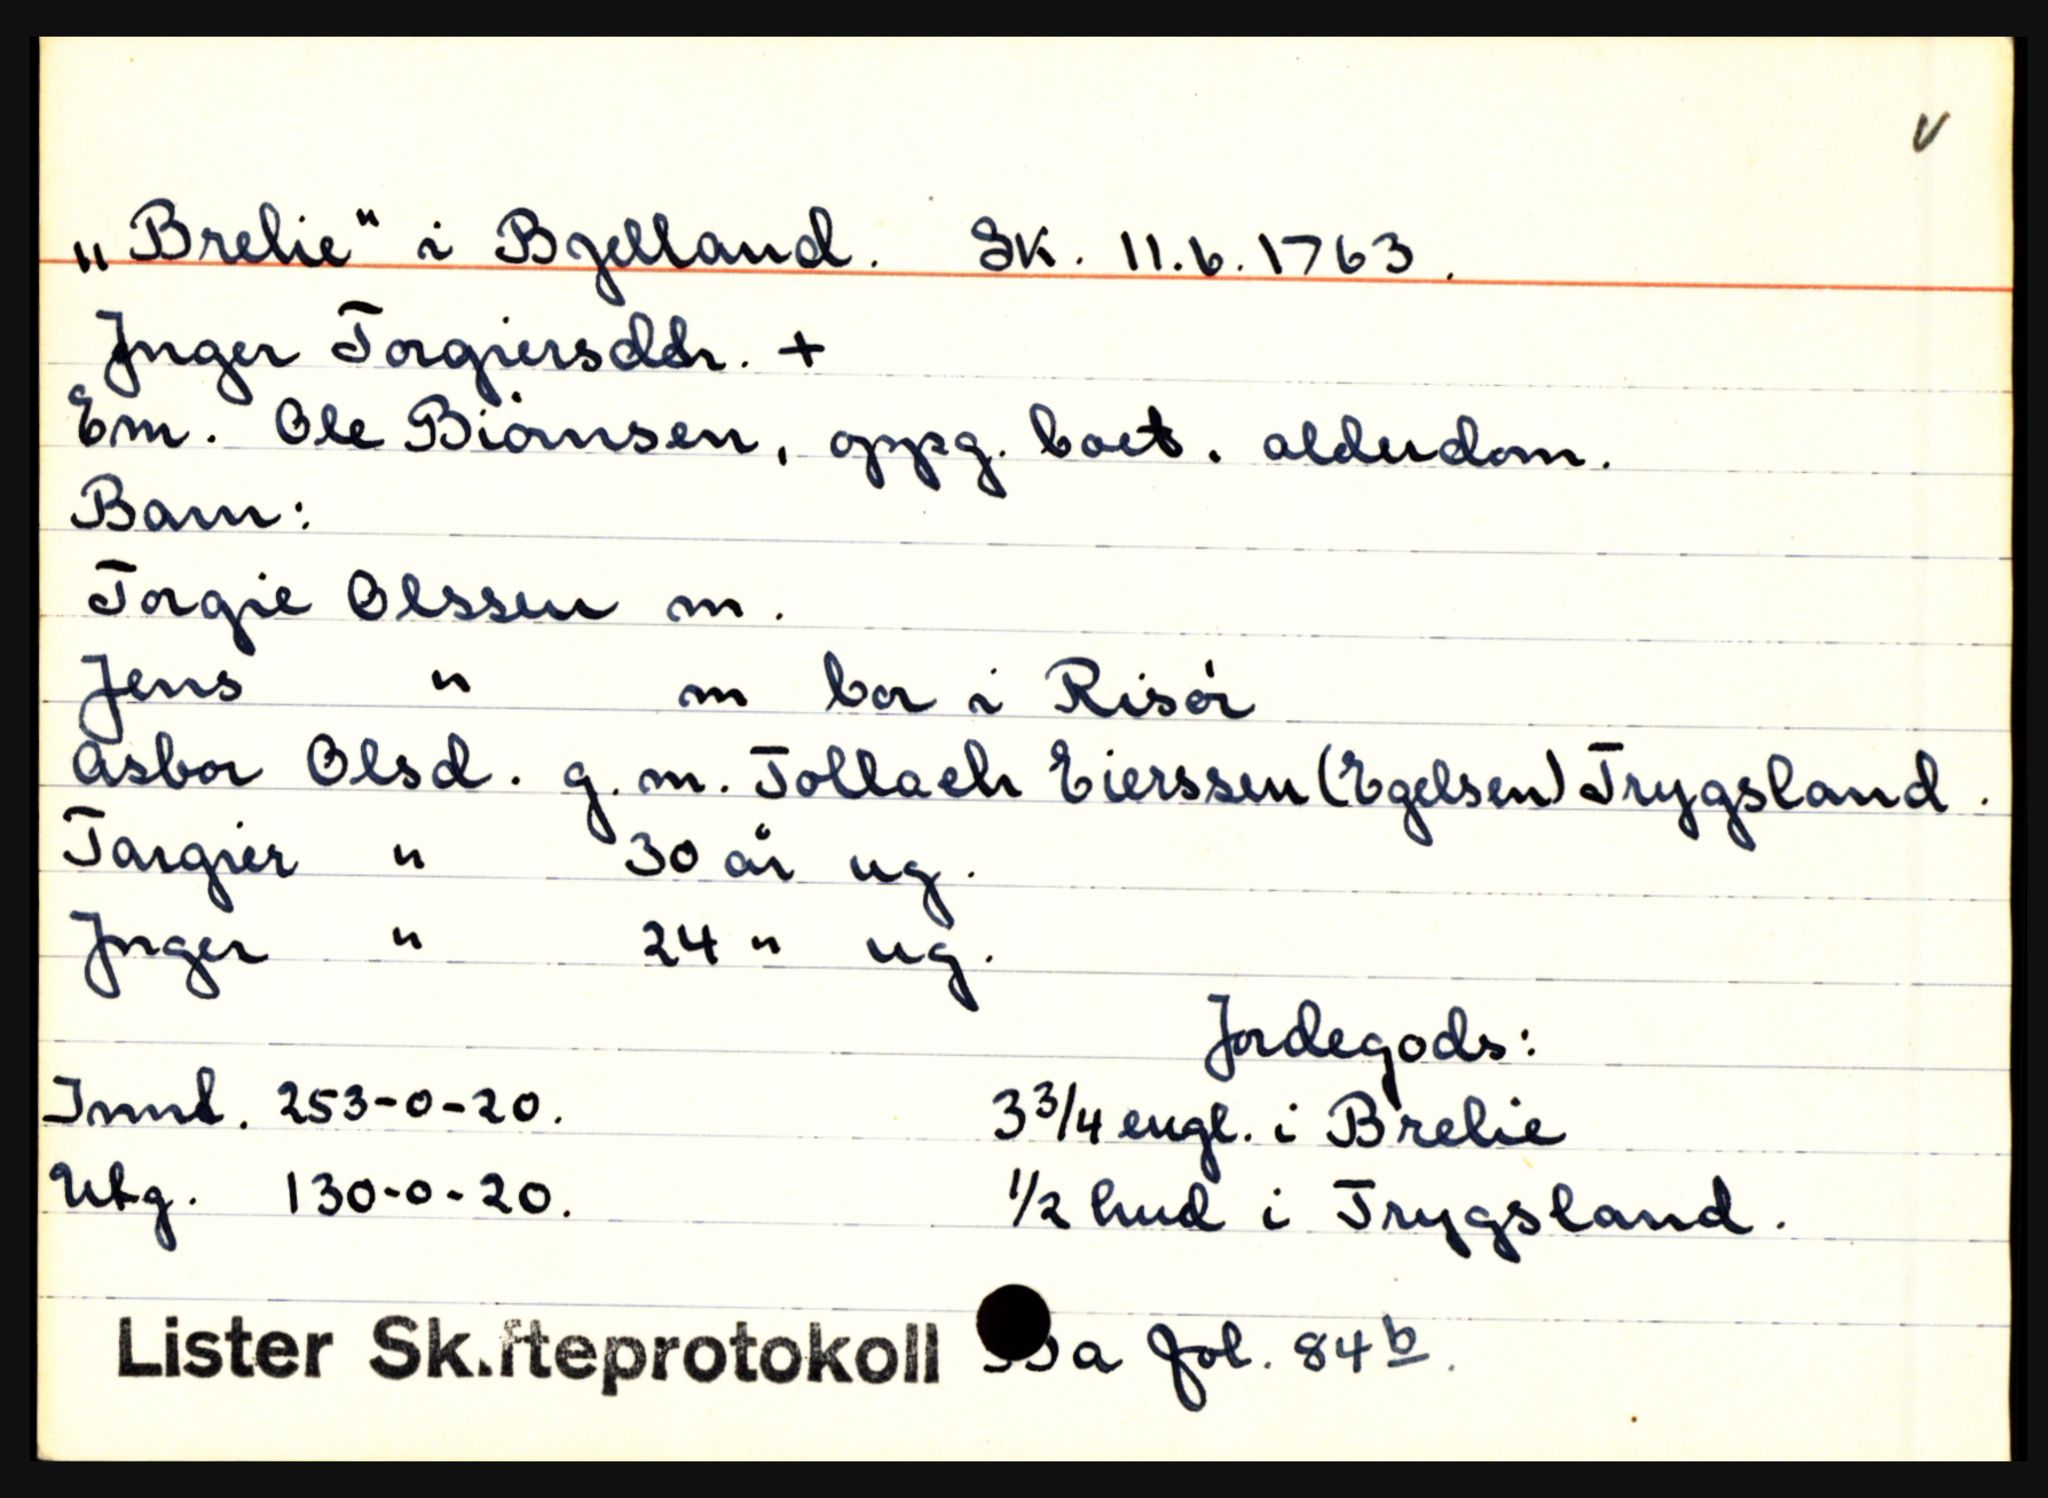 v
„Brelie" i Bjelland. Sk. 11.6.1763.
Inger Torgiersdtr. +
Em. Ole Biörnsen, oppg. boet. alderdom.
Barn:
Torgie Olssen m.
Jens " m bor i Risör
Asbor Olsd. g.m. Tollach Eierssen (Egelsen) Trygsland.
Targier " 30 år ug.
Inger " 24 " ug.
Jordegods:
Innt. 253-0-20. 3 3/4 engl. i Brelie
Utg. 130-0-20. 1/2 hud i Trygsland.
Lister Skifteprotokoll a fol. 84b.